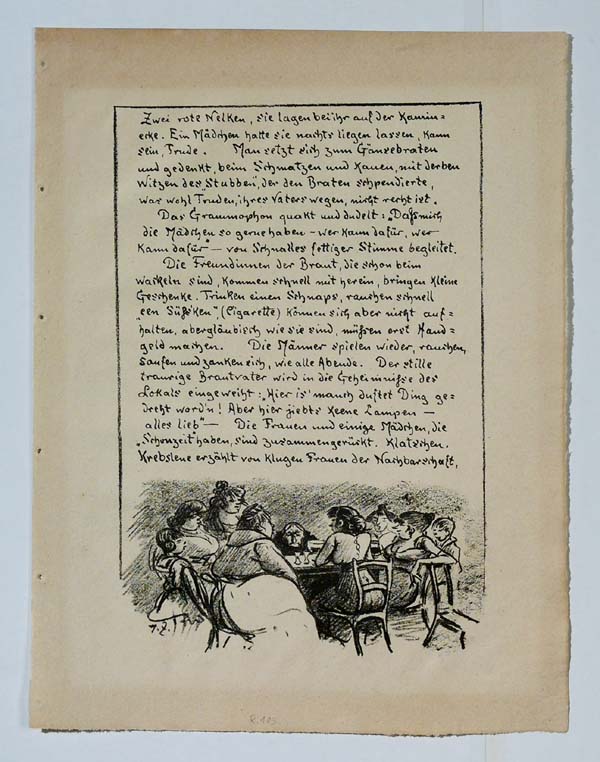 Zwei rote Nelken, sie lagen bei ihr auf der Kamin=
ecke. Ein Mädchen hatte sie nachts liegen lassen, kann
sein, Trude. Man setzt sich zum Gänsebraten
und gedenkt, beim Schmatzen und Kauen, mit derben
Witzen des „Stubben", der den Braten schpendierte,
was wohl Truden, ihres Vaters wegen, nicht recht ist.
Das Grammophon quakt und dudelt: „Daß mich
die Mädchen so gerne haben – wer kann dafür, wer
kann dafür" – von Schnalles fettiger Stimme begleitet.
Die Freundinnen der Braut, die schon beim
wackeln sind, kommen schnell mit herein, bringen kleine
Geschenke. Trinken einen Schnaps, rauchen schnell
„een Süßken" (Cigarette) können sich aber nicht auf=
halten, abergläubisch wie sie sind, müßen erst Hand=
geld machen. Die Männer spielen wieder, rauchen,
saufen und zanken sich, wie alle Abende. Der stille
traurige Brautvater wird in die Geheimniße des
Lokals eingeweiht: „Hier is' manch duftet Ding ge=
dreht word'n! Aber hier jiebts keene Lampen –
alles lieb" – Die Frauen und einige Mädchen, die
„Schonzeit" haben, sind zusammengerückt. Klatschen.
Krebslene erzählt von klugen Frauen der Nachbarschaft,
H. Z.
R. 103